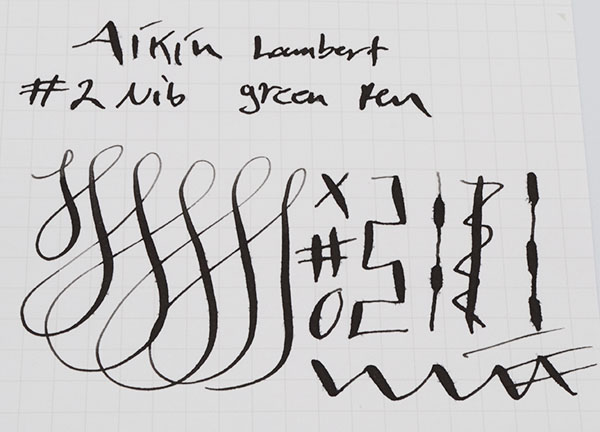 Aikin Lambert
#2 Nib green Pen
X
#
O